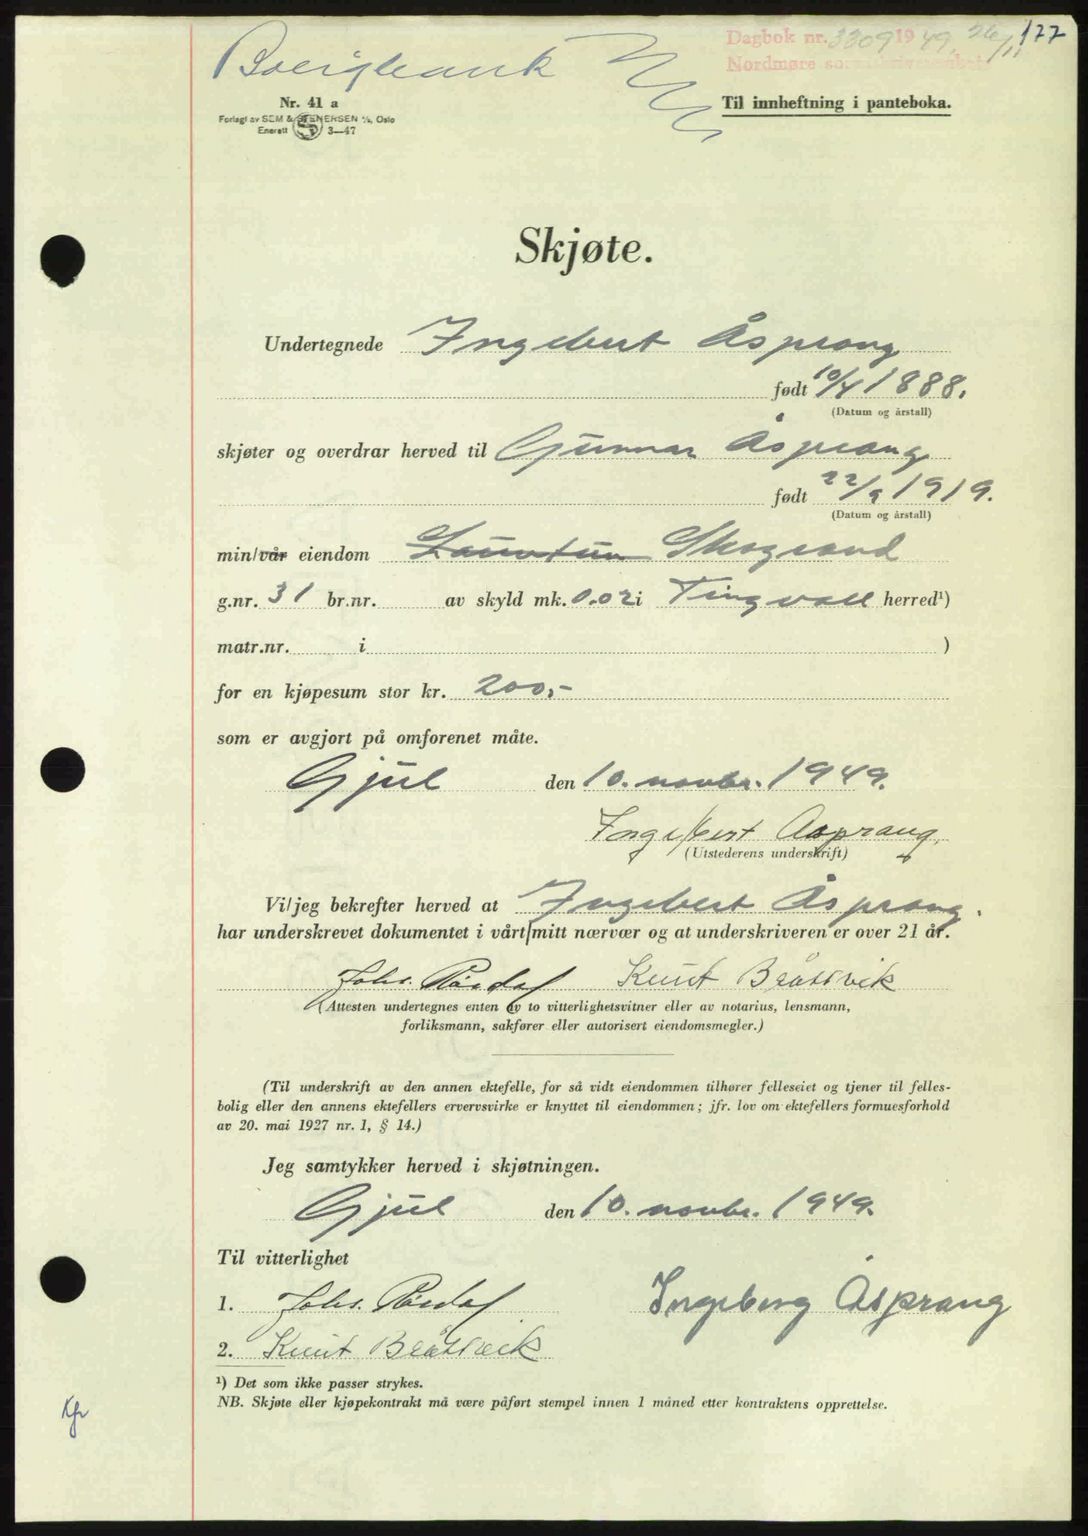 Dagbok nr. 3309 1949. 26/11 177
Nordmøre sorenskriverembete
Nr. 41 a
Til innheftning i panteboka.
Forlagt av SEM & STENERSEN A/S, Oslo
Enerett S 3—47
Skjøte.
Undertegnede Ingebert Åsprang
født 10/4 1888.
(Datum og årstall)
skjøter og overdrar herved til Gunnar Åsprang
født 22/9 1919.
(Datum og årstall)
min/vår eiendom Skogrand
g.nr. 31 br.nr. av skyld mk. 0.02 i Tingvoll herred¹)
matr.nr. i )
for en kjøpesum stor kr. 200,-
som er avgjort på omforenet måte.
Gjul den 10. novbr. 1949.
Ingebert Åsprang,
(Utstederens underskrift)
Vi/jeg bekrefter herved at Ingebert Åsprang.
har underskrevet dokumentet i vårt/mitt nærvær og at underskriveren er over 21 år.
Johs. Rørdal Knut Bråttvik
(Attesten undertegnes enten av to vitterlighetsvitner eller av notarius, lensmann,
forliksmann, sakfører eller autorisert eiendomsmegler.)
(Til underskrift av den annen ektefelle, for så vidt eiendommen tilhører felleseiet og tjener til felles-
bolig eller den annens ektefellers ervervsvirke er knyttet til eiendommen; jfr. lov om ektefellers formuesforhold
av 20. mai 1927 nr. 1, § 14.)
Jeg samtykker herved i skjøtningen.
Gjul den 10. novbr. 1949.
Til vitterlighet
1. Johs. Rørdal Ingeborg Åsprang
2. Knut Bråttvik
¹) Det som ikke passer strykes.
NB. Skjøte eller kjøpekontrakt må være påført stempel innen 1 måned etter kontraktens opprettelse.